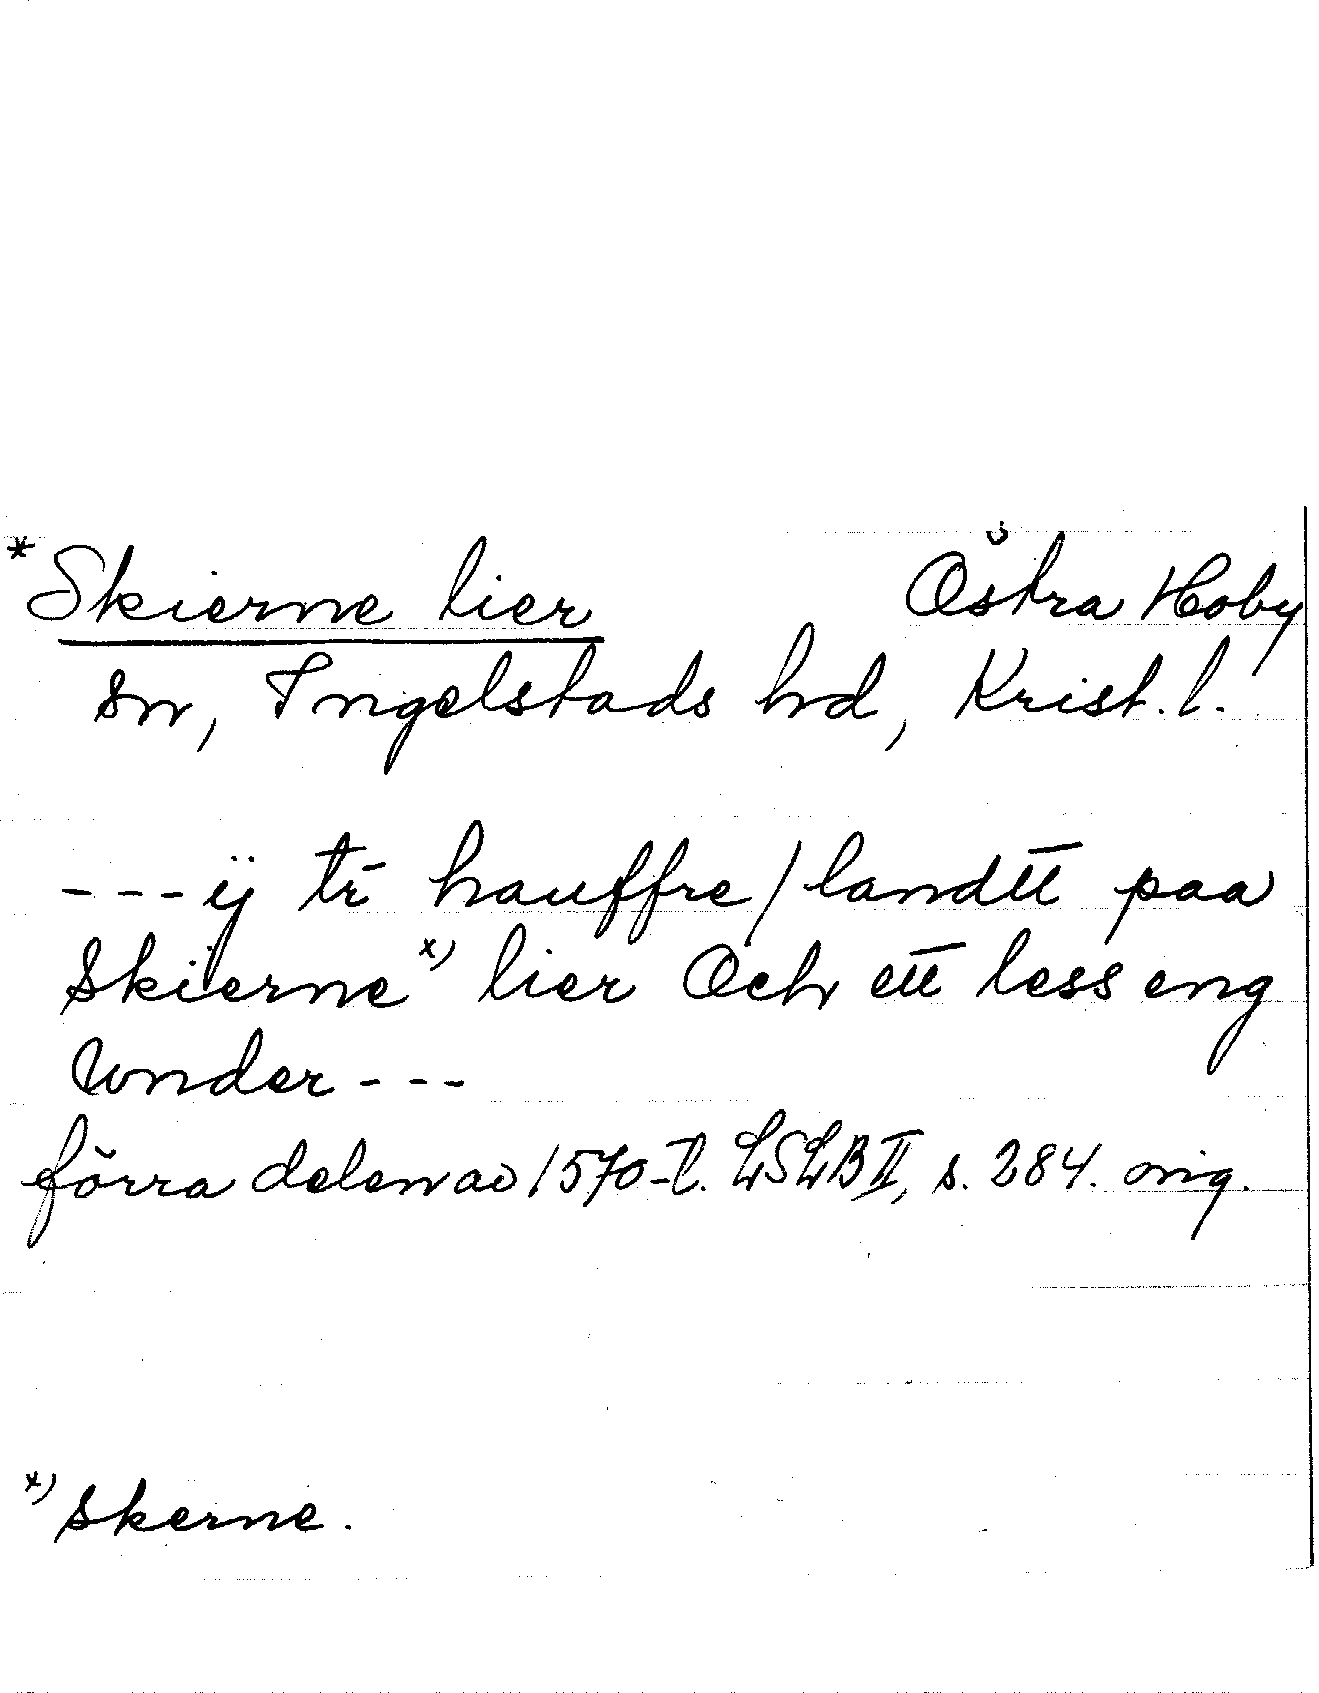 *Skierne lier Östra Hoby
sn, Ingelstads hd, Krist. l.
---ij tr hauffre/landtt paa
Skierne x) lier Och ett less eng
Wnder---
förra delen av 1570-t. LSLB II, s. 284. orig.
x) Skerne.